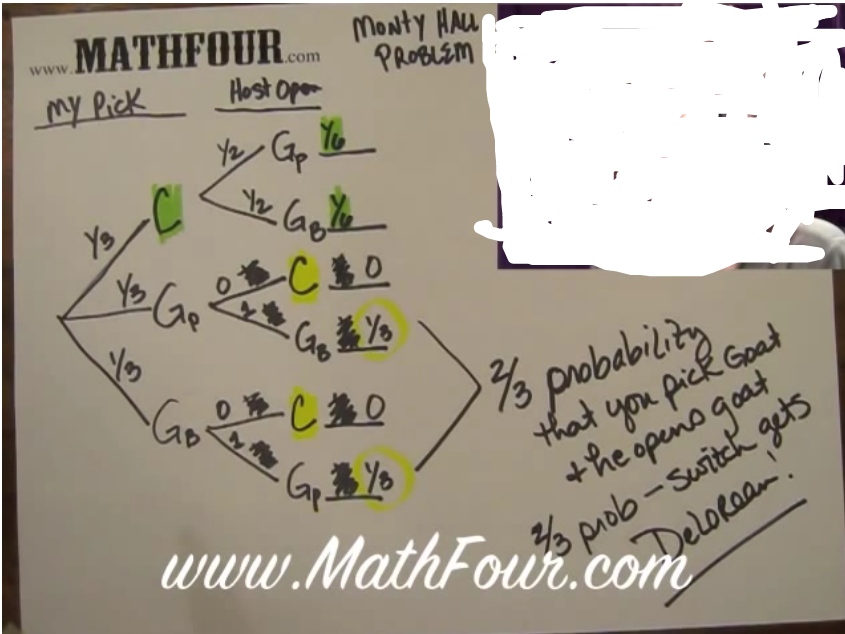 www.MATHFOUR.com
MONTY HALL
PROBLEM
MY PICK
Host Open
1/2 Gp 1/6
C
1/2 GB 1/6
1/3
0 C 0
1/3 Gp
1 GB 1/3
1/3
0 C 0
GB
1 Gp 1/3
2/3 probability
that you pick Goat
+ he opens goat
2/3 prob - switch gets
DeLorean!
www.MathFour.com